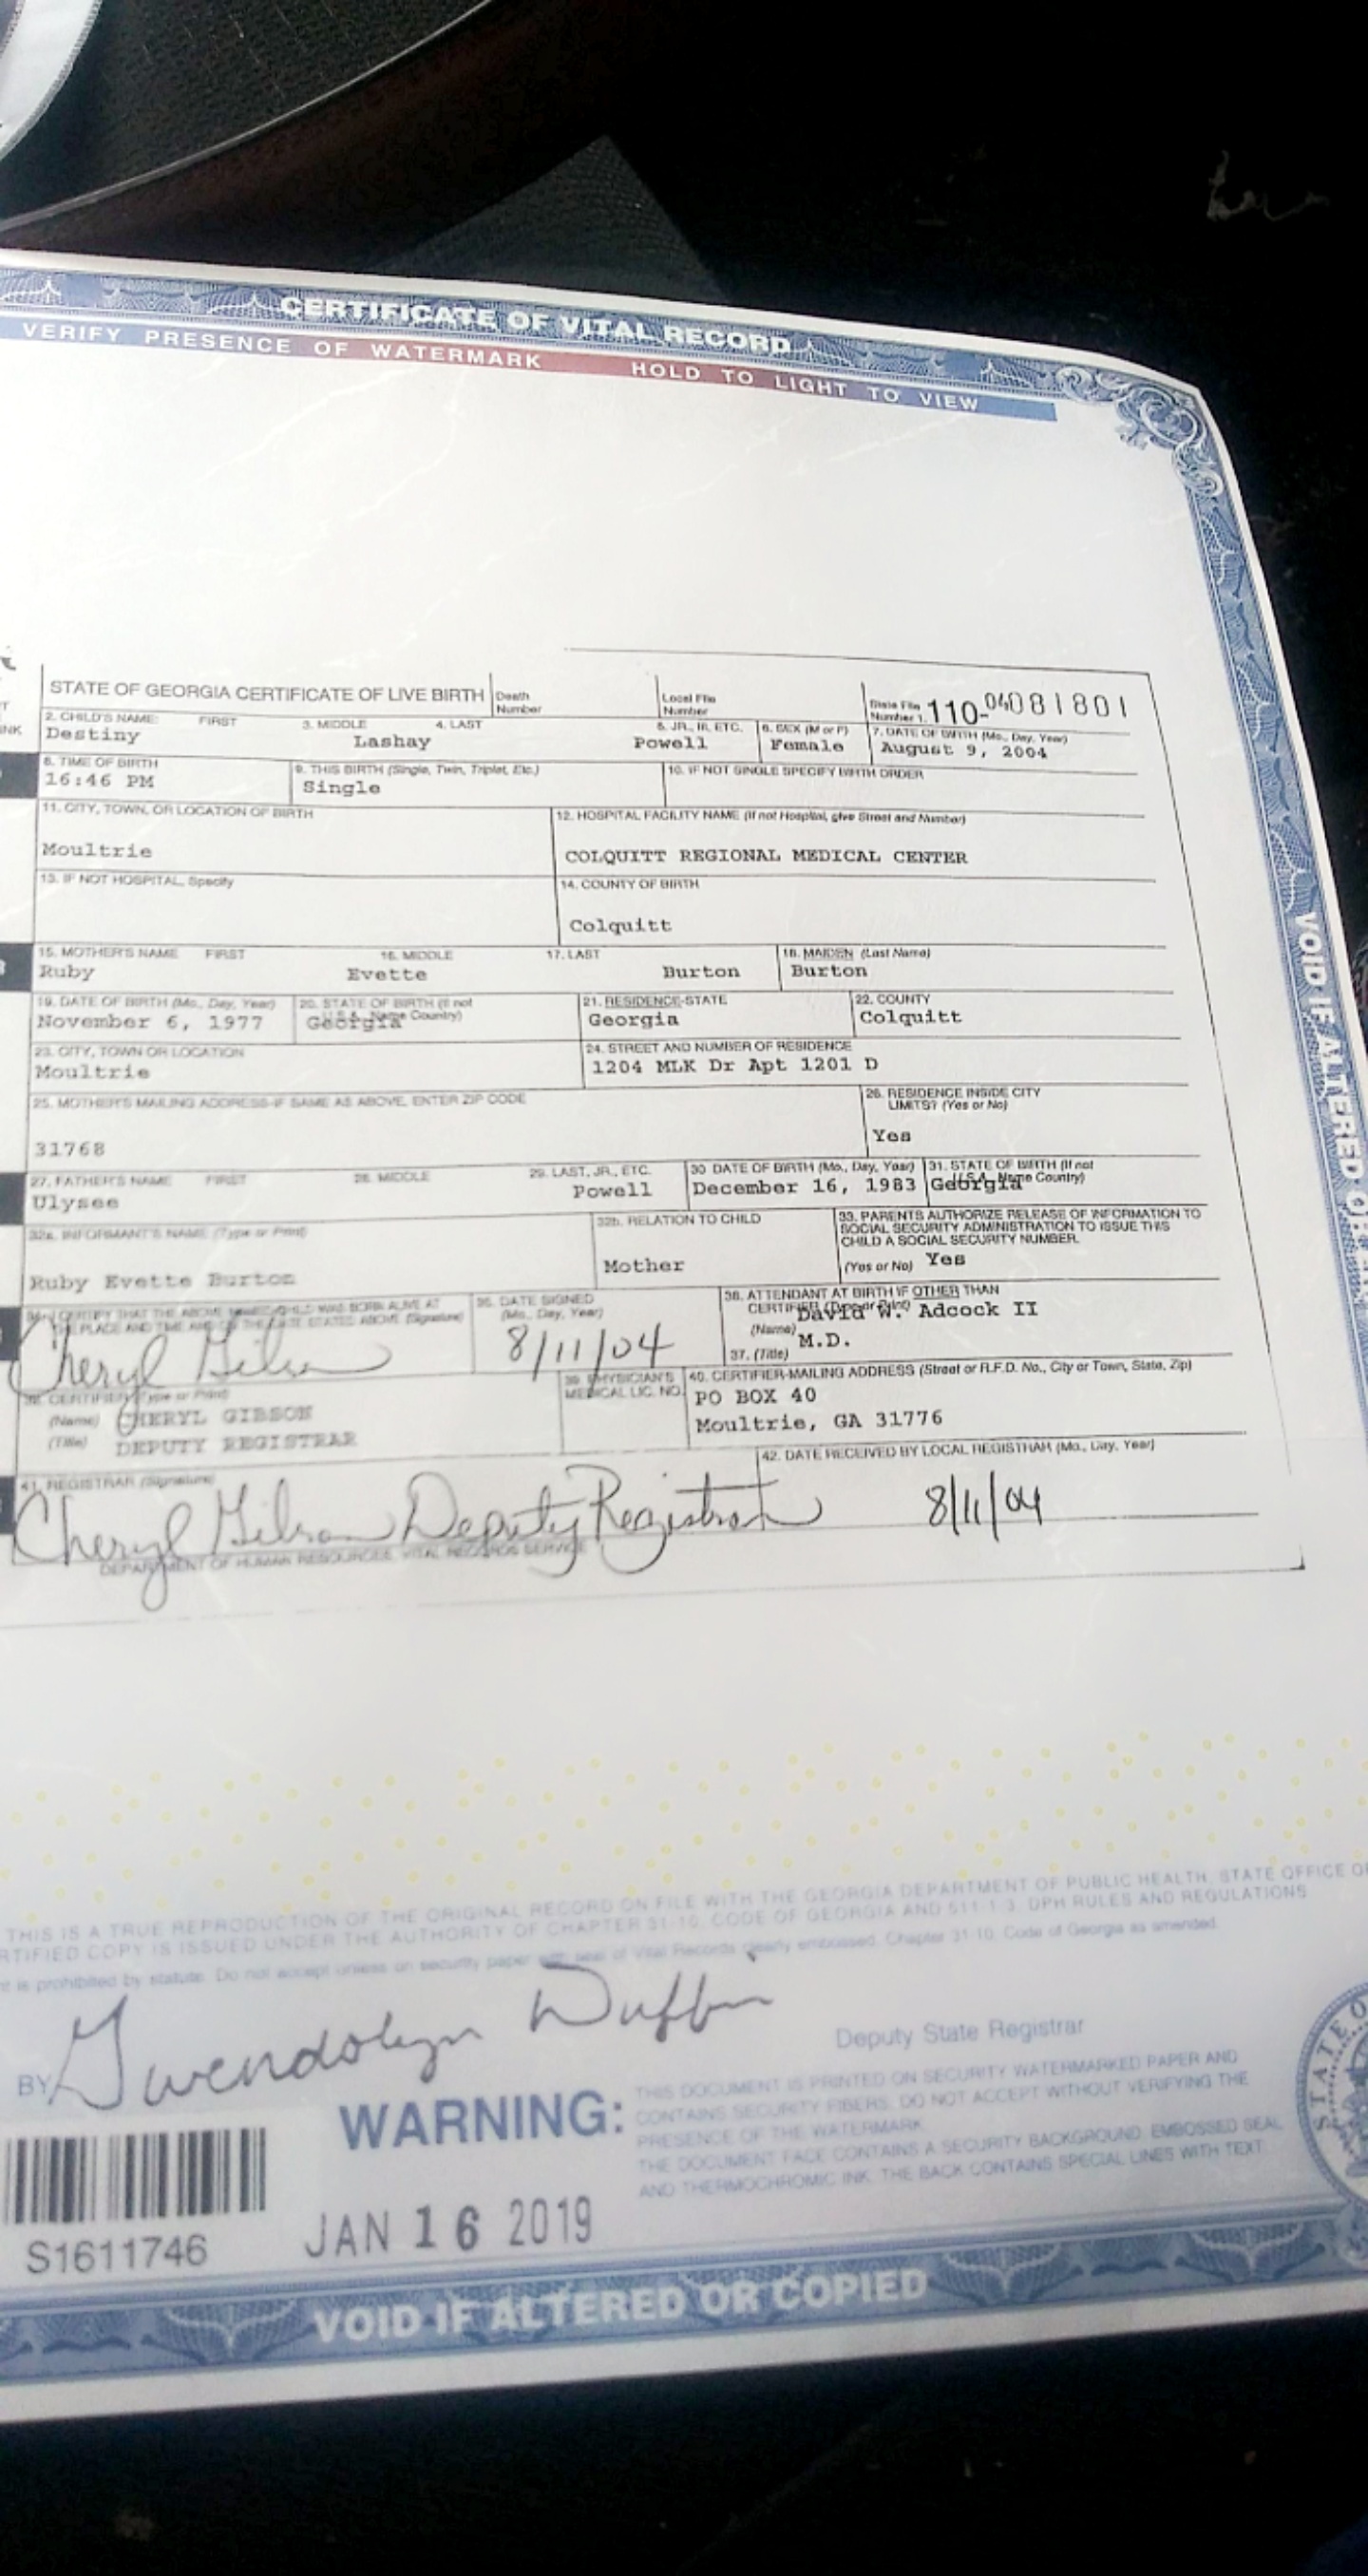 CERTIFICATE OF VITAL RECORD
VERIFY PRESENCE OF WATERMARK HOLD TO LIGHT TO VIEW
STATE OF GEORGIA CERTIFICATE OF LIVE BIRTH Death Number Local File Number State File Number 1. 110-04081801
2. CHILD'S NAME: FIRST 3. MIDDLE 4. LAST 5. JR., III, ETC. 6. SEX (M or F) 7. DATE OF BIRTH (Mo., Day, Year)
Destiny Lashay Powell Female August 9, 2004
8. TIME OF BIRTH 9. THIS BIRTH (Single, Twin, Triplet, Etc.) 10. IF NOT SINGLE SPECIFY BIRTH ORDER
16:46 PM Single
11. CITY, TOWN, OR LOCATION OF BIRTH 12. HOSPITAL FACILITY NAME (If not Hospital, give Street and Number)
Moultrie COLQUITT REGIONAL MEDICAL CENTER
13. IF NOT HOSPITAL, Specify 14. COUNTY OF BIRTH
Colquitt
15. MOTHER'S NAME FIRST 16. MIDDLE 17. LAST 18. MAIDEN (Last Name)
Ruby Evette Burton Burton
19. DATE OF BIRTH (Mo., Day, Year) 20. STATE OF BIRTH (If not U.S.A., Name Country) 21. RESIDENCE-STATE 22. COUNTY
November 6, 1977 Georgia Georgia Colquitt
23. CITY, TOWN OR LOCATION 24. STREET AND NUMBER OF RESIDENCE
Moultrie 1204 MLK Dr Apt 1201 D
25. MOTHER'S MAILING ADDRESS-IF SAME AS ABOVE, ENTER ZIP CODE 26. RESIDENCE INSIDE CITY LIMITS? (Yes or No)
31768 Yes
27. FATHER'S NAME FIRST 28. MIDDLE 29. LAST, JR., ETC. 30 DATE OF BIRTH (Mo., Day, Year) 31. STATE OF BIRTH (If not U.S.A., Name Country)
Ulysee Powell December 16, 1983 Georgia
32a. INFORMANT'S NAME (Type or Print) 32b. RELATION TO CHILD 33. PARENTS AUTHORIZE RELEASE OF INFORMATION TO
SOCIAL SECURITY ADMINISTRATION TO ISSUE THIS
CHILD A SOCIAL SECURITY NUMBER.
Ruby Evette Burton Mother (Yes or No) Yes
34. I CERTIFY THAT THE ABOVE NAMED CHILD WAS BORN ALIVE AT
THE PLACE AND TIME AND ON THE DATE STATED ABOVE (Signature)
Cheryl Gibson
35. DATE SIGNED (Mo., Day, Year)
8/11/04
36. ATTENDANT AT BIRTH IF OTHER THAN
CERTIFIER (Type or Print)
(Name) David W. Adcock II
37. (Title) M.D.
38. CERTIFIER (Type or Print)
(Name) CHERYL GIBSON
(Title) DEPUTY REGISTRAR
39. PHYSICIAN'S MEDICAL LIC. NO.
40. CERTIFIER-MAILING ADDRESS (Street or R.F.D. No., City or Town, State, Zip)
PO BOX 40
Moultrie, GA 31776
41. REGISTRAR (Signature) 42. DATE RECEIVED BY LOCAL REGISTRAR (Mo., Day, Year)
Cheryl Gibson Deputy Registrar 8/11/04
DEPARTMENT OF HUMAN RESOURCES, VITAL RECORDS SERVICE
VOID IF ALTERED OR
THIS IS A TRUE REPRODUCTION OF THE ORIGINAL RECORD ON FILE WITH THE GEORGIA DEPARTMENT OF PUBLIC HEALTH, STATE OFFICE OF
RTIFIED COPY IS ISSUED UNDER THE AUTHORITY OF CHAPTER 31-10, CODE OF GEORGIA AND 511-1-3, DPH RULES AND REGULATIONS
nt is prohibited by statute. Do not accept unless on security paper with seal of Vital Records clearly embossed. Chapter 31-10, Code of Georgia as amended.
BY Gwendolyn Duffin
Deputy State Registrar
WARNING:
THIS DOCUMENT IS PRINTED ON SECURITY WATERMARKED PAPER AND
CONTAINS SECURITY FIBERS. DO NOT ACCEPT WITHOUT VERIFYING THE
PRESENCE OF THE WATERMARK.
THE DOCUMENT FACE CONTAINS A SECURITY BACKGROUND, EMBOSSED SEAL
AND THERMOCHROMIC INK. THE BACK CONTAINS SPECIAL LINES WITH TEXT.
STATE O
S1611746
JAN 16 2019
VOID IF ALTERED OR COPIED